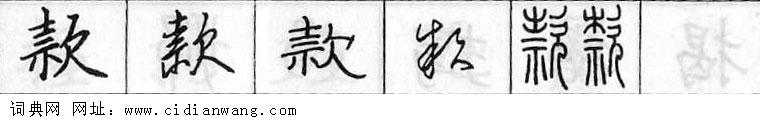 款 款 款 款 款 款
词典网 网址：www.cidianwang.com